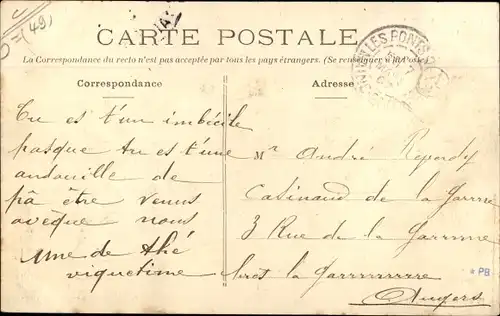 (49)
CARTE POSTALE
La Correspondance du recto n'est pas acceptée par tous les pays étrangers. (Se renseigner à la Poste)
Correspondance
Adresse
Tu es t'un imbécile
pasque tu es t'une
andouille de
pâ être venus
avèque nous
une de thé
viquetime
Mr André
Casinaud de la Garrrne
3 Rue de la Garrrnne
lres la Garrrrrrrrre
Angers
LES PONTS DE CÉ
PB